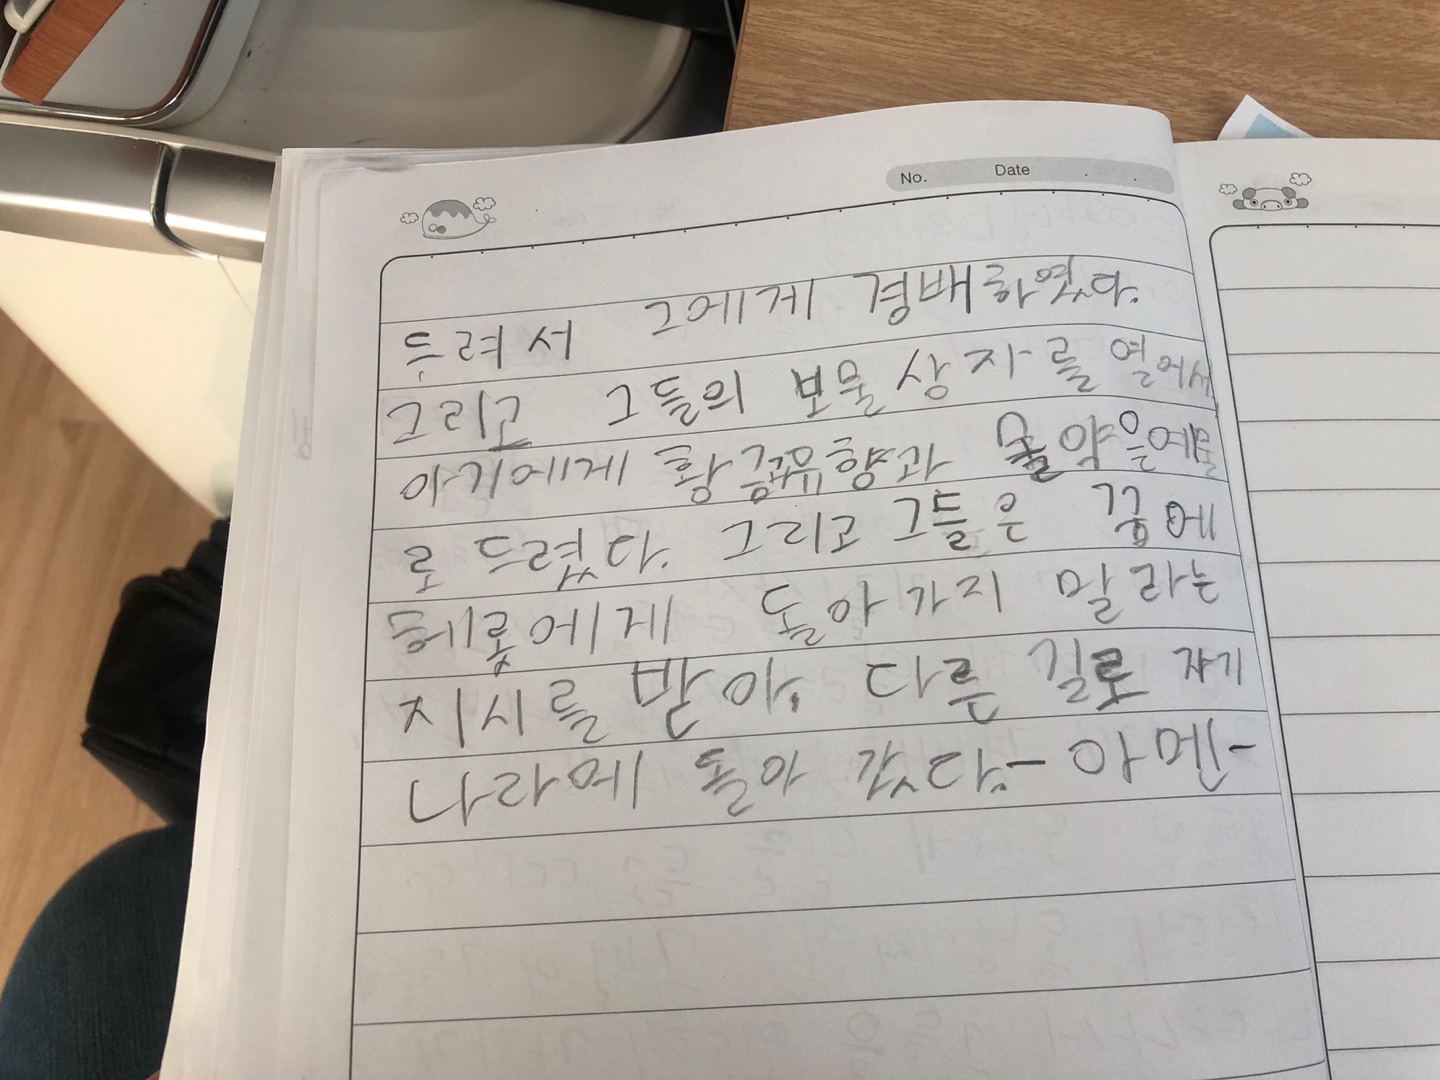 No. Date
드려서 그에게 경배하였다.
그리고 그들의 보물상자를 열어서
아기에게 황금유향과 몰약을예물
로 드렸다. 그리고 그들은 꿈에
헤롯에게 돌아가지 말라는
지시를 받아 다른 길로 자기
나라에 돌아 갔다- 아멘-